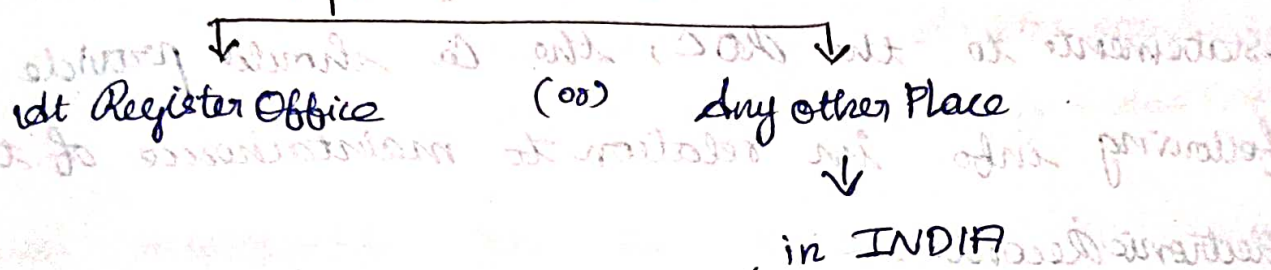 At Register Office (or) Any other Place
in INDIA